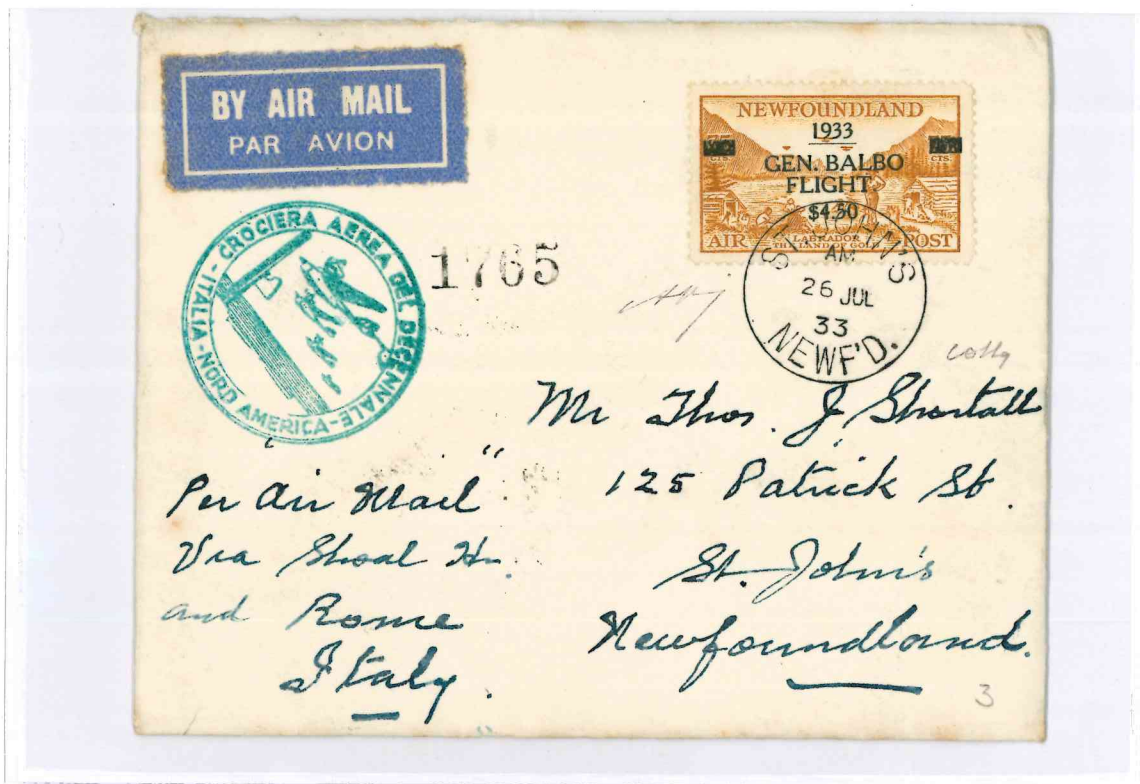 BY AIR MAIL
PAR AVION
NEWFOUNDLAND
1933
GEN. BALBO
FLIGHT
$4.50
CTS.
CTS.
LABRADOR
THE LAND OF GOLD
AIR POST
ST. JOHN'S
AM
26 JUL
33
NEWF'D.
CROCIERA AEREA DEL DECENNALE-
ITALIA-NORD AMERICA-
1765
Mr Thos. J Shortall
125 Patrick St.
St. John's
Newfoundland.
"Per Air Mail"
Via Shoal Hr.
and Rome
Italy.
3